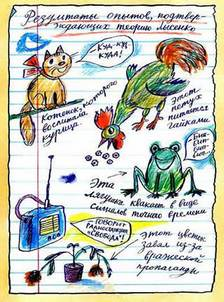 Результаты опытов, подтвер-
ждающих теорию Лысенко
- Куд-куд-
куда!
Котенок, которого
воспитала
курица.
Этот
петух
питается
гайками.
Эта
лягушка квакает в виде
сигналов точного времени
Говорит
радиостанция
"Свобода"!
Этот цветок
завял из-за
вражеской
пропаганды